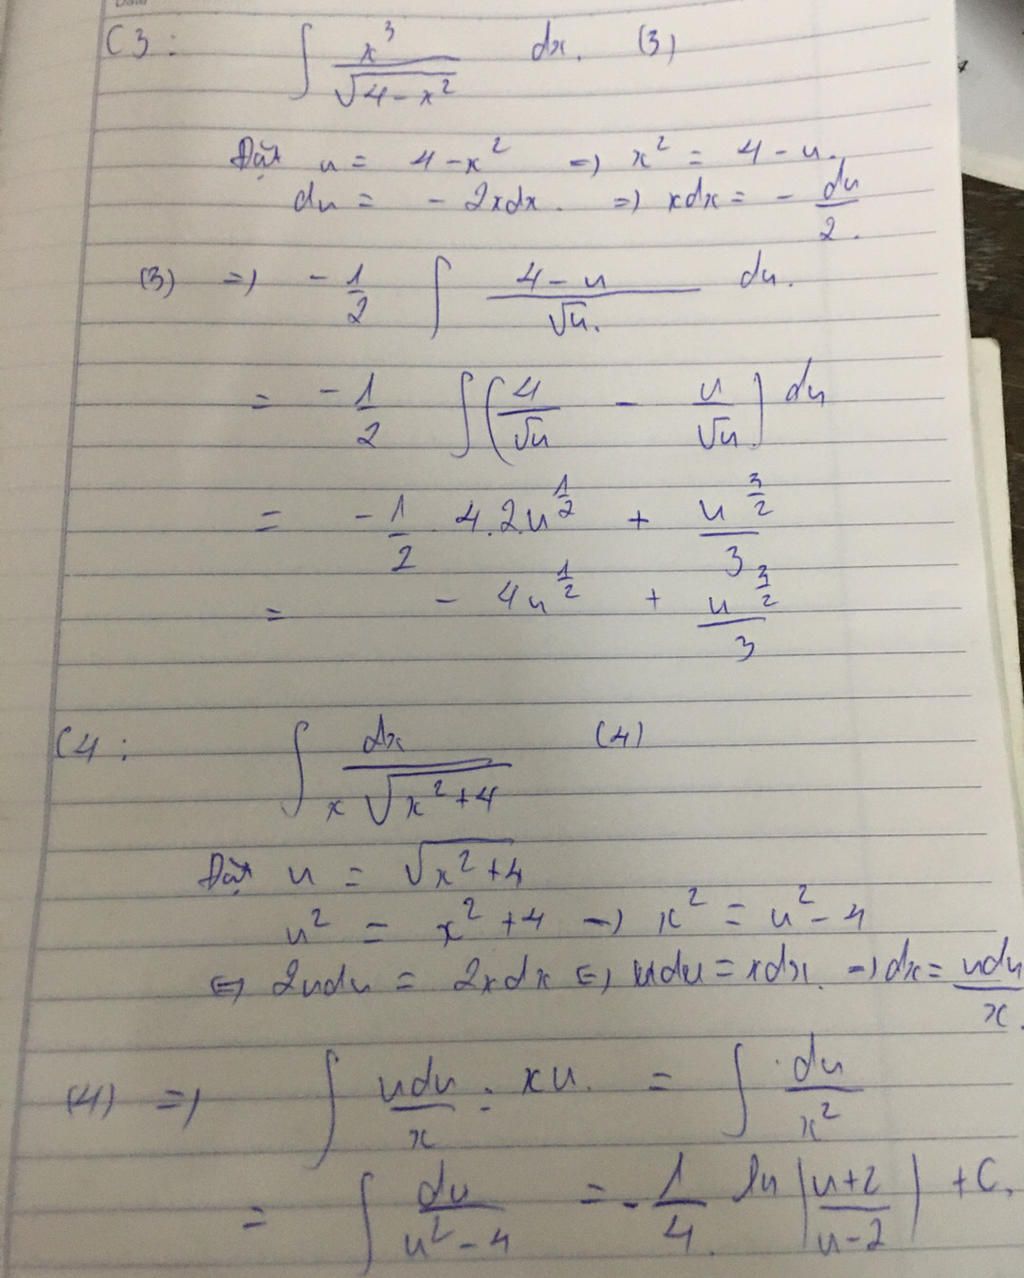 C3 : ∫ x³/√(4-x²) dx. (3)
Đặt u = 4-x² => x² = 4-u.
du = -2xdx. => xdx = -du/2.
(3) => -1/2 ∫ (4-u)/√u. du.
= -1/2 ∫(4/√u - u/√u) du
= -1/2 4.2u^(1/2) + u^(3/2)/3
= -4u^(1/2) + u^(3/2)/3
C4 : ∫ dx/(x√(x²+4)) (4)
Đặt u = √(x²+4)
u² = x²+4 -> x² = u²-4
<=> 2udu = 2xdx <=> udu = xdx. -> dx = udu/x.
(4) => ∫ udu/x : xu. = ∫ du/x²
= ∫ du/(u²-4) = -1/4. ln |(u+2)/(u-2)| + C.